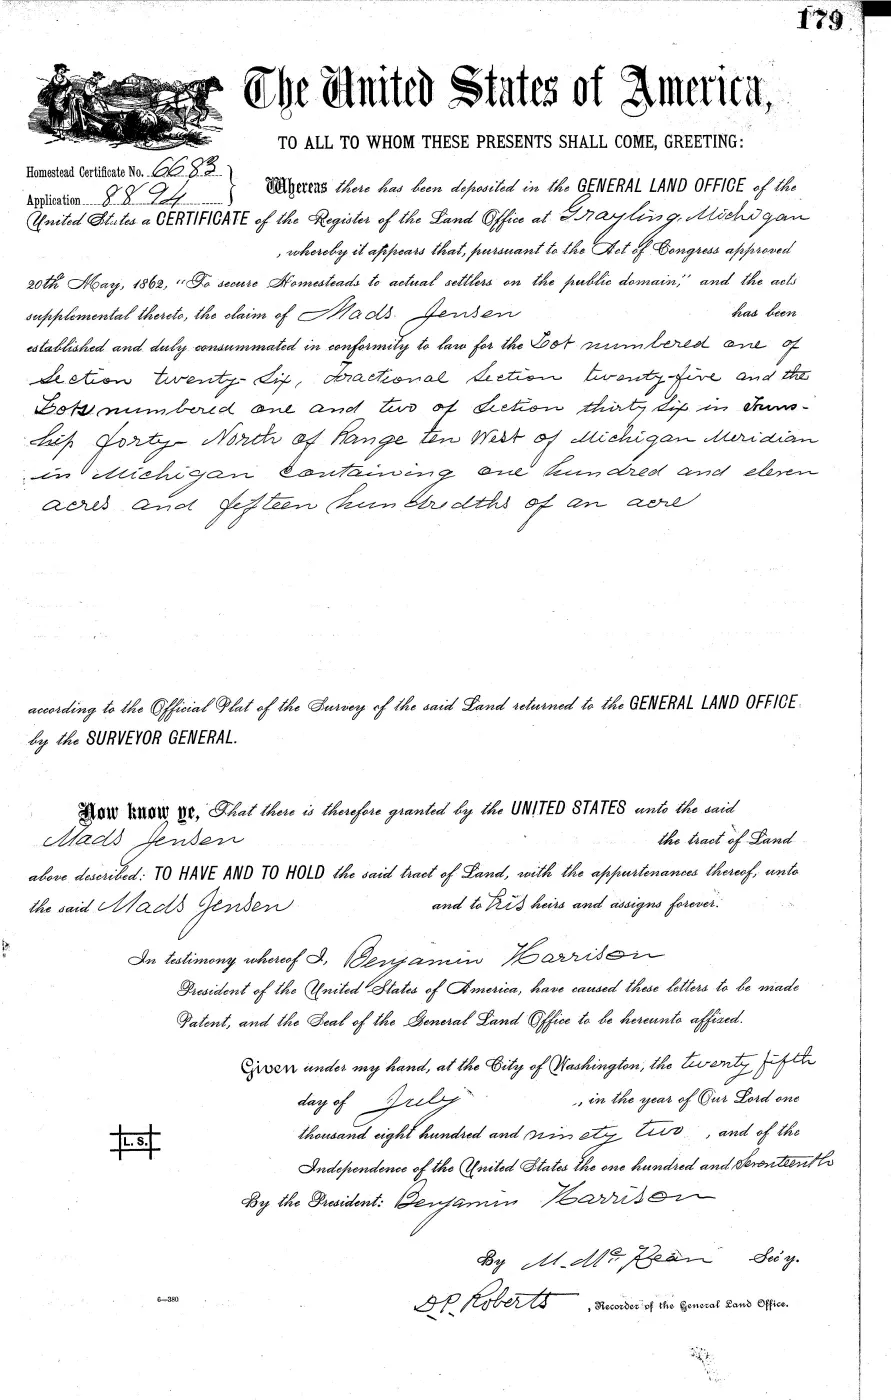 179
The United States of America,
TO ALL TO WHOM THESE PRESENTS SHALL COME, GREETING:
Homestead Certificate No. 6683
Application 8894
Whereas there has been deposited in the GENERAL LAND OFFICE of the
United States a CERTIFICATE of the Register of the Land Office at Grayling, Michigan
, whereby it appears that, pursuant to the Act of Congress approved
20th May, 1862, "To secure Homesteads to actual settlers on the public domain," and the acts
supplemental thereto, the claim of Mads Jensen has been
established and duly consummated in conformity to law for the Lot numbered one of
Section twenty-six, Fractional Section twenty-five and the
Lots numbered one and two of Section thirty six in Town-
ship forty North of Range ten West of Michigan Meridian
in Michigan containing one hundred and eleven
acres and fifteen hundredths of an acre
according to the Official Plat of the Survey of the said Land returned to the GENERAL LAND OFFICE
by the SURVEYOR GENERAL.
Now know ye, That there is therefore granted by the UNITED STATES unto the said
Mads Jensen the tract of Land
above described: TO HAVE AND TO HOLD the said tract of Land, with the appurtenances thereof, unto
the said Mads Jensen and to his heirs and assigns forever.
In testimony whereof I, Benjamin Harrison
President of the United States of America, have caused these letters to be made
Patent, and the Seal of the General Land Office to be hereunto affixed.
Given under my hand, at the City of Washington, the twenty fifth
day of July, in the year of Our Lord one
thousand eight hundred and ninety two, and of the
Independence of the United States the one hundred and Seventeenth
L. S.
By the President: Benjamin Harrison
By M. McKean Sec'y.
6—380
D.P. Roberts, Recorder of the General Land Office.